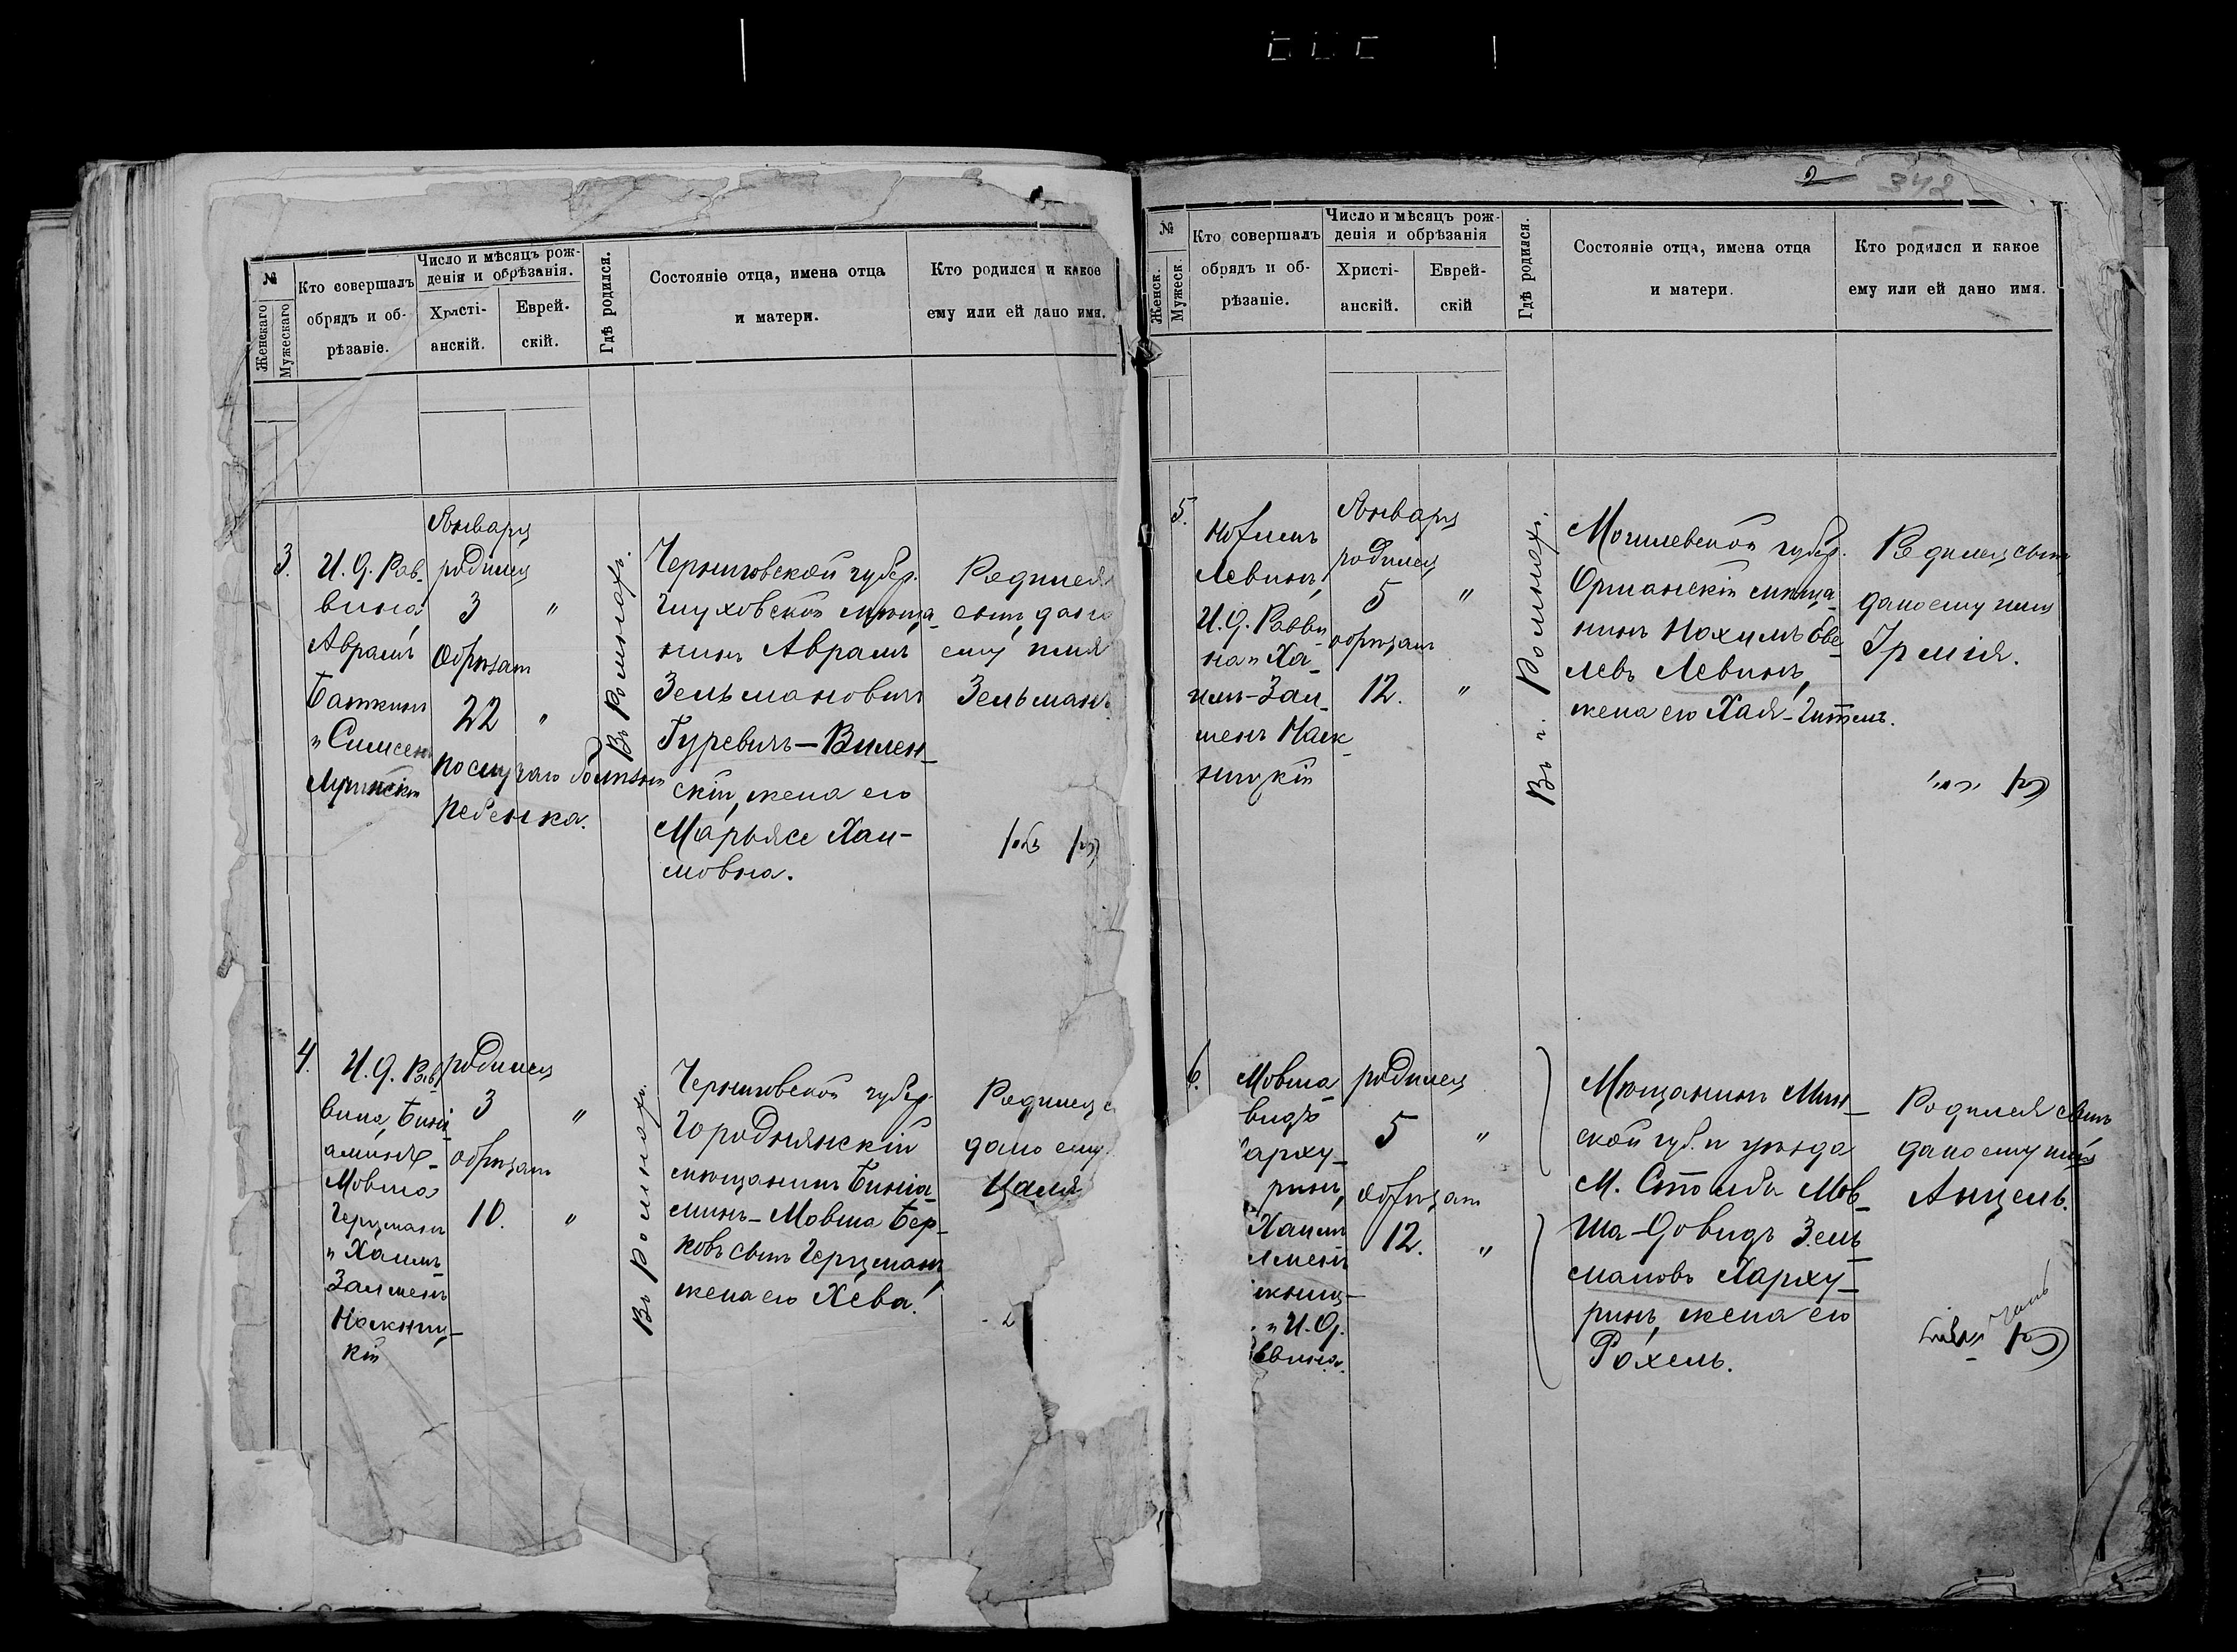 2 342
№
Женскаго
Мужескаго
Кто совершалъ
обрядъ и об-
рѣзаніе.
Число и мѣсяцъ рож-
денія и обрѣзанія.
Христі-
анскій.
Еврей-
скій.
Гдѣ родился.
Состояніе отца, имена отца
и матери.
Кто родился и какое
ему или ей дано имя.
3.
И. д. Рав-
вина
Аврамъ
Баткинъ
Января
родился
3 "
обрѣзанъ
22 "
по случаю болѣзни
ребенка.
Въ Ромнахъ.
Черниговской губер.
Глуховской мѣща-
нинъ Аврамъ
Зельмановичъ
Гуревичъ-Вилен-
скій, жена его
Марьясе Хаи-
мовна.
Родился
сынъ, дано
ему имя
Зельманъ.
4.
И. д. Рав-
вина, Бинiа-
Мовша
Герцманъ
" Хаимъ
Залменъ
родился
3 "
обрѣзанъ
10. "
Въ Ромнахъ.
Черниговской губер.
Городнянскій
мѣщанинъ Бинiа-
минъ-Мовша Бер-
ковъ сынъ Герцманъ,
жена его Хева.
Родился с
дано ему
№
Женск.
Мужеск.
Кто совершалъ
обрядъ и об-
рѣзаніе.
Число и мѣсяцъ рож-
денія и обрѣзанія
Христі-
анскій.
Еврей-
скій
Гдѣ родился.
Состояніе отца, имена отца
и матери.
Кто родился и какое
ему или ей дано имя.
5.
Нохимъ
Левинъ,
И. д. Равви-
на " Ха-
имъ-Зал-
менъ
Января
родился
5 "
обрѣзанъ
12. "
Въ г. Ромнахъ.
Могилевской губер.
Оршанскій мѣща-
нинъ Нохимъ Ове-
левъ Левинъ,
жена его Хая-Гитель.
Родился сынъ
дано ему имя
Іремія.
6.
Мовша
видъ
арху-
ринъ,
Хаимъ
лменъ
" И. д.
ввина.
родился
5 "
обрѣзанъ
12. "
Мѣщанинъ Мин-
ской губ. и уѣзда
М. Столбы Мов-
ша-Довидъ Зель-
мановъ Харху-
ринъ, жена его
Рохель.
Родился сынъ
дано ему имя
Анцель.